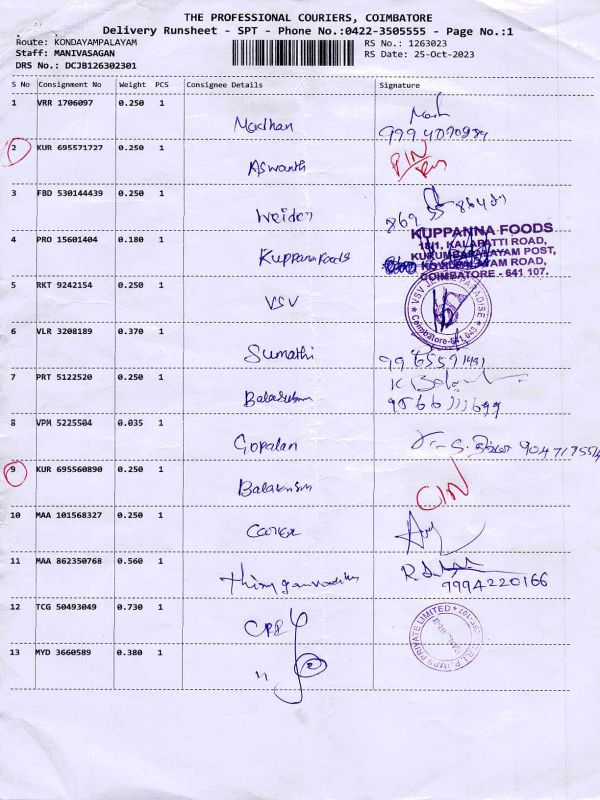 THE PROFESSIONAL COURIERS, COIMBATORE
Delivery Runsheet - SPT - Phone No.:0422-3505555 - Page No.:1
Route: KONDAYAMPALAYAM RS No.: 1263023
Staff: MANIVASAGAN RS Date: 25-Oct-2023
DRS No.: DCJB126302301
S No Consignment No Weight PCS Consignee Details Signature
1 VRR 1706097 0.250 1
Madhan
2 KUR 695571727 0.250 1
Aswanth
3 FBD 530144439 0.250 1
4 PRO 15601404 0.180 1
Kuppana Foods
KUPPANNA FOODS
18/1, KALAPATTI ROAD,
KURUMBAPALAYAM POST,
KOVILPALAYAM ROAD,
COIMBATORE - 641 107.
5 RKT 9242154 0.250 1
VSV
VSV PARADISE
Coimbatore-641
6 VLR 3208189 0.370 1
Sumathi
7 PRT 5122520 0.250 1
K
8 VPM 5225504 0.035 1
Gopalan
9 KUR 695560890 0.250 1
10 MAA 101568327 0.250 1
11 MAA 862350768 0.560 1
9994220166
12 TCG 50493049 0.730 1
CRI
PUMPS PRIVATE LIMITED
13 MYD 3660589 0.380 1
"
2